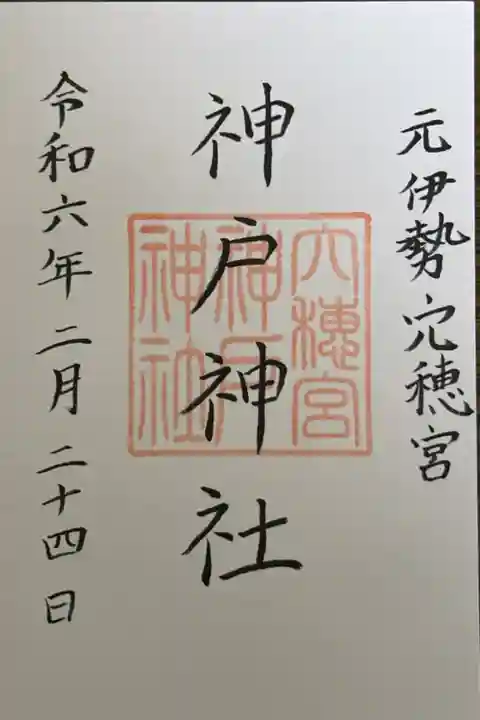 元伊勢 穴穂宮
神戸神社
令和六年 二月 二十四日
穴穂宮
神戸
神社